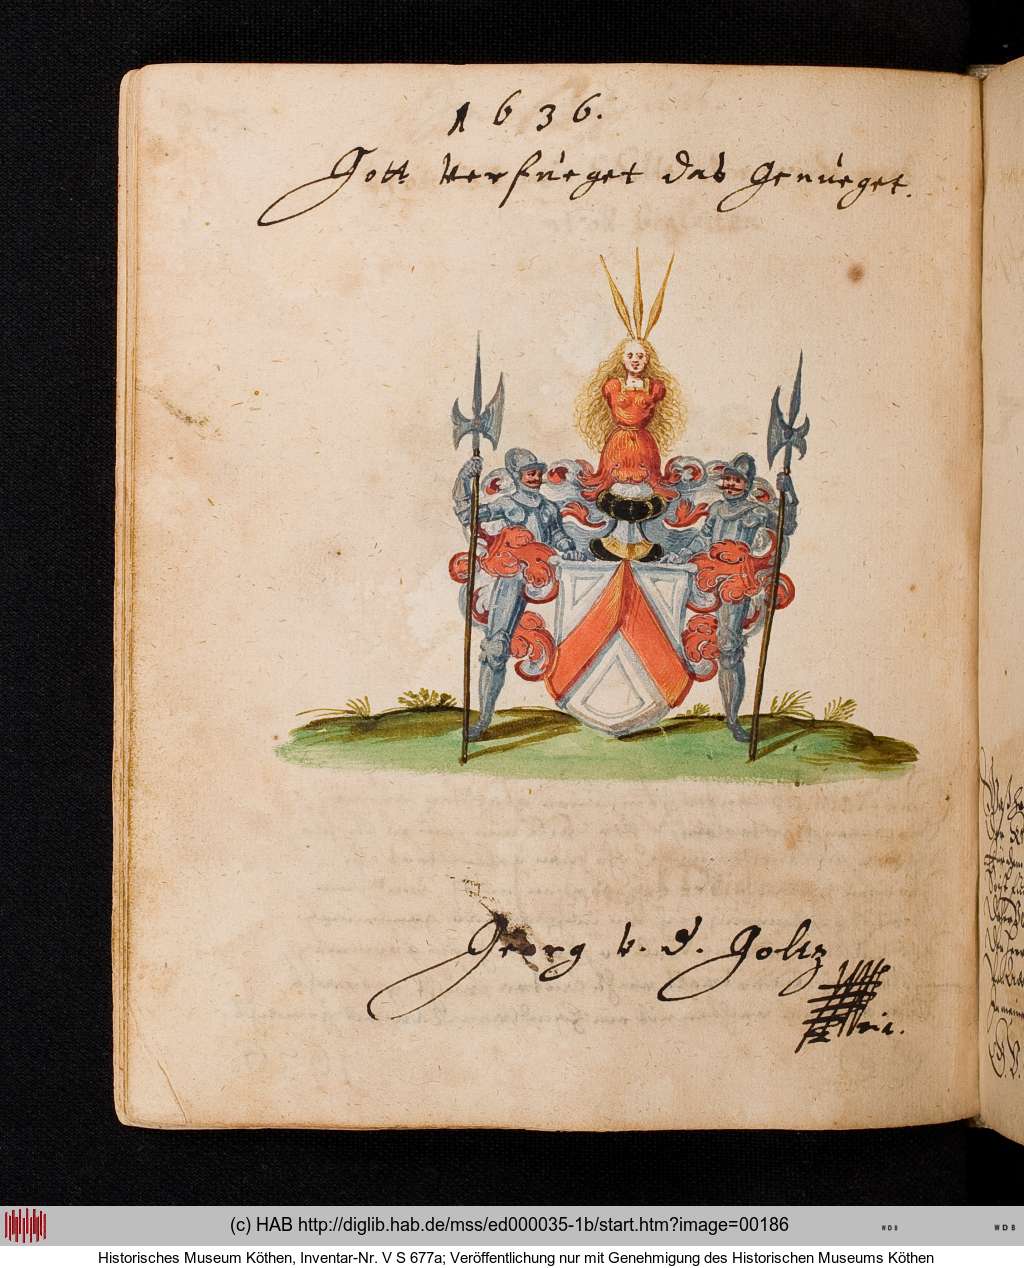 1636.
Gott verfueget das genueget.
Georg v. d. Goltz
mia.
(c) HAB http://diglib.hab.de/mss/ed000035-1b/start.htm?image=00186
WDB
WDB
Historisches Museum Köthen, Inventar-Nr. V S 677a; Veröffentlichung nur mit Genehmigung des Historischen Museums Köthen